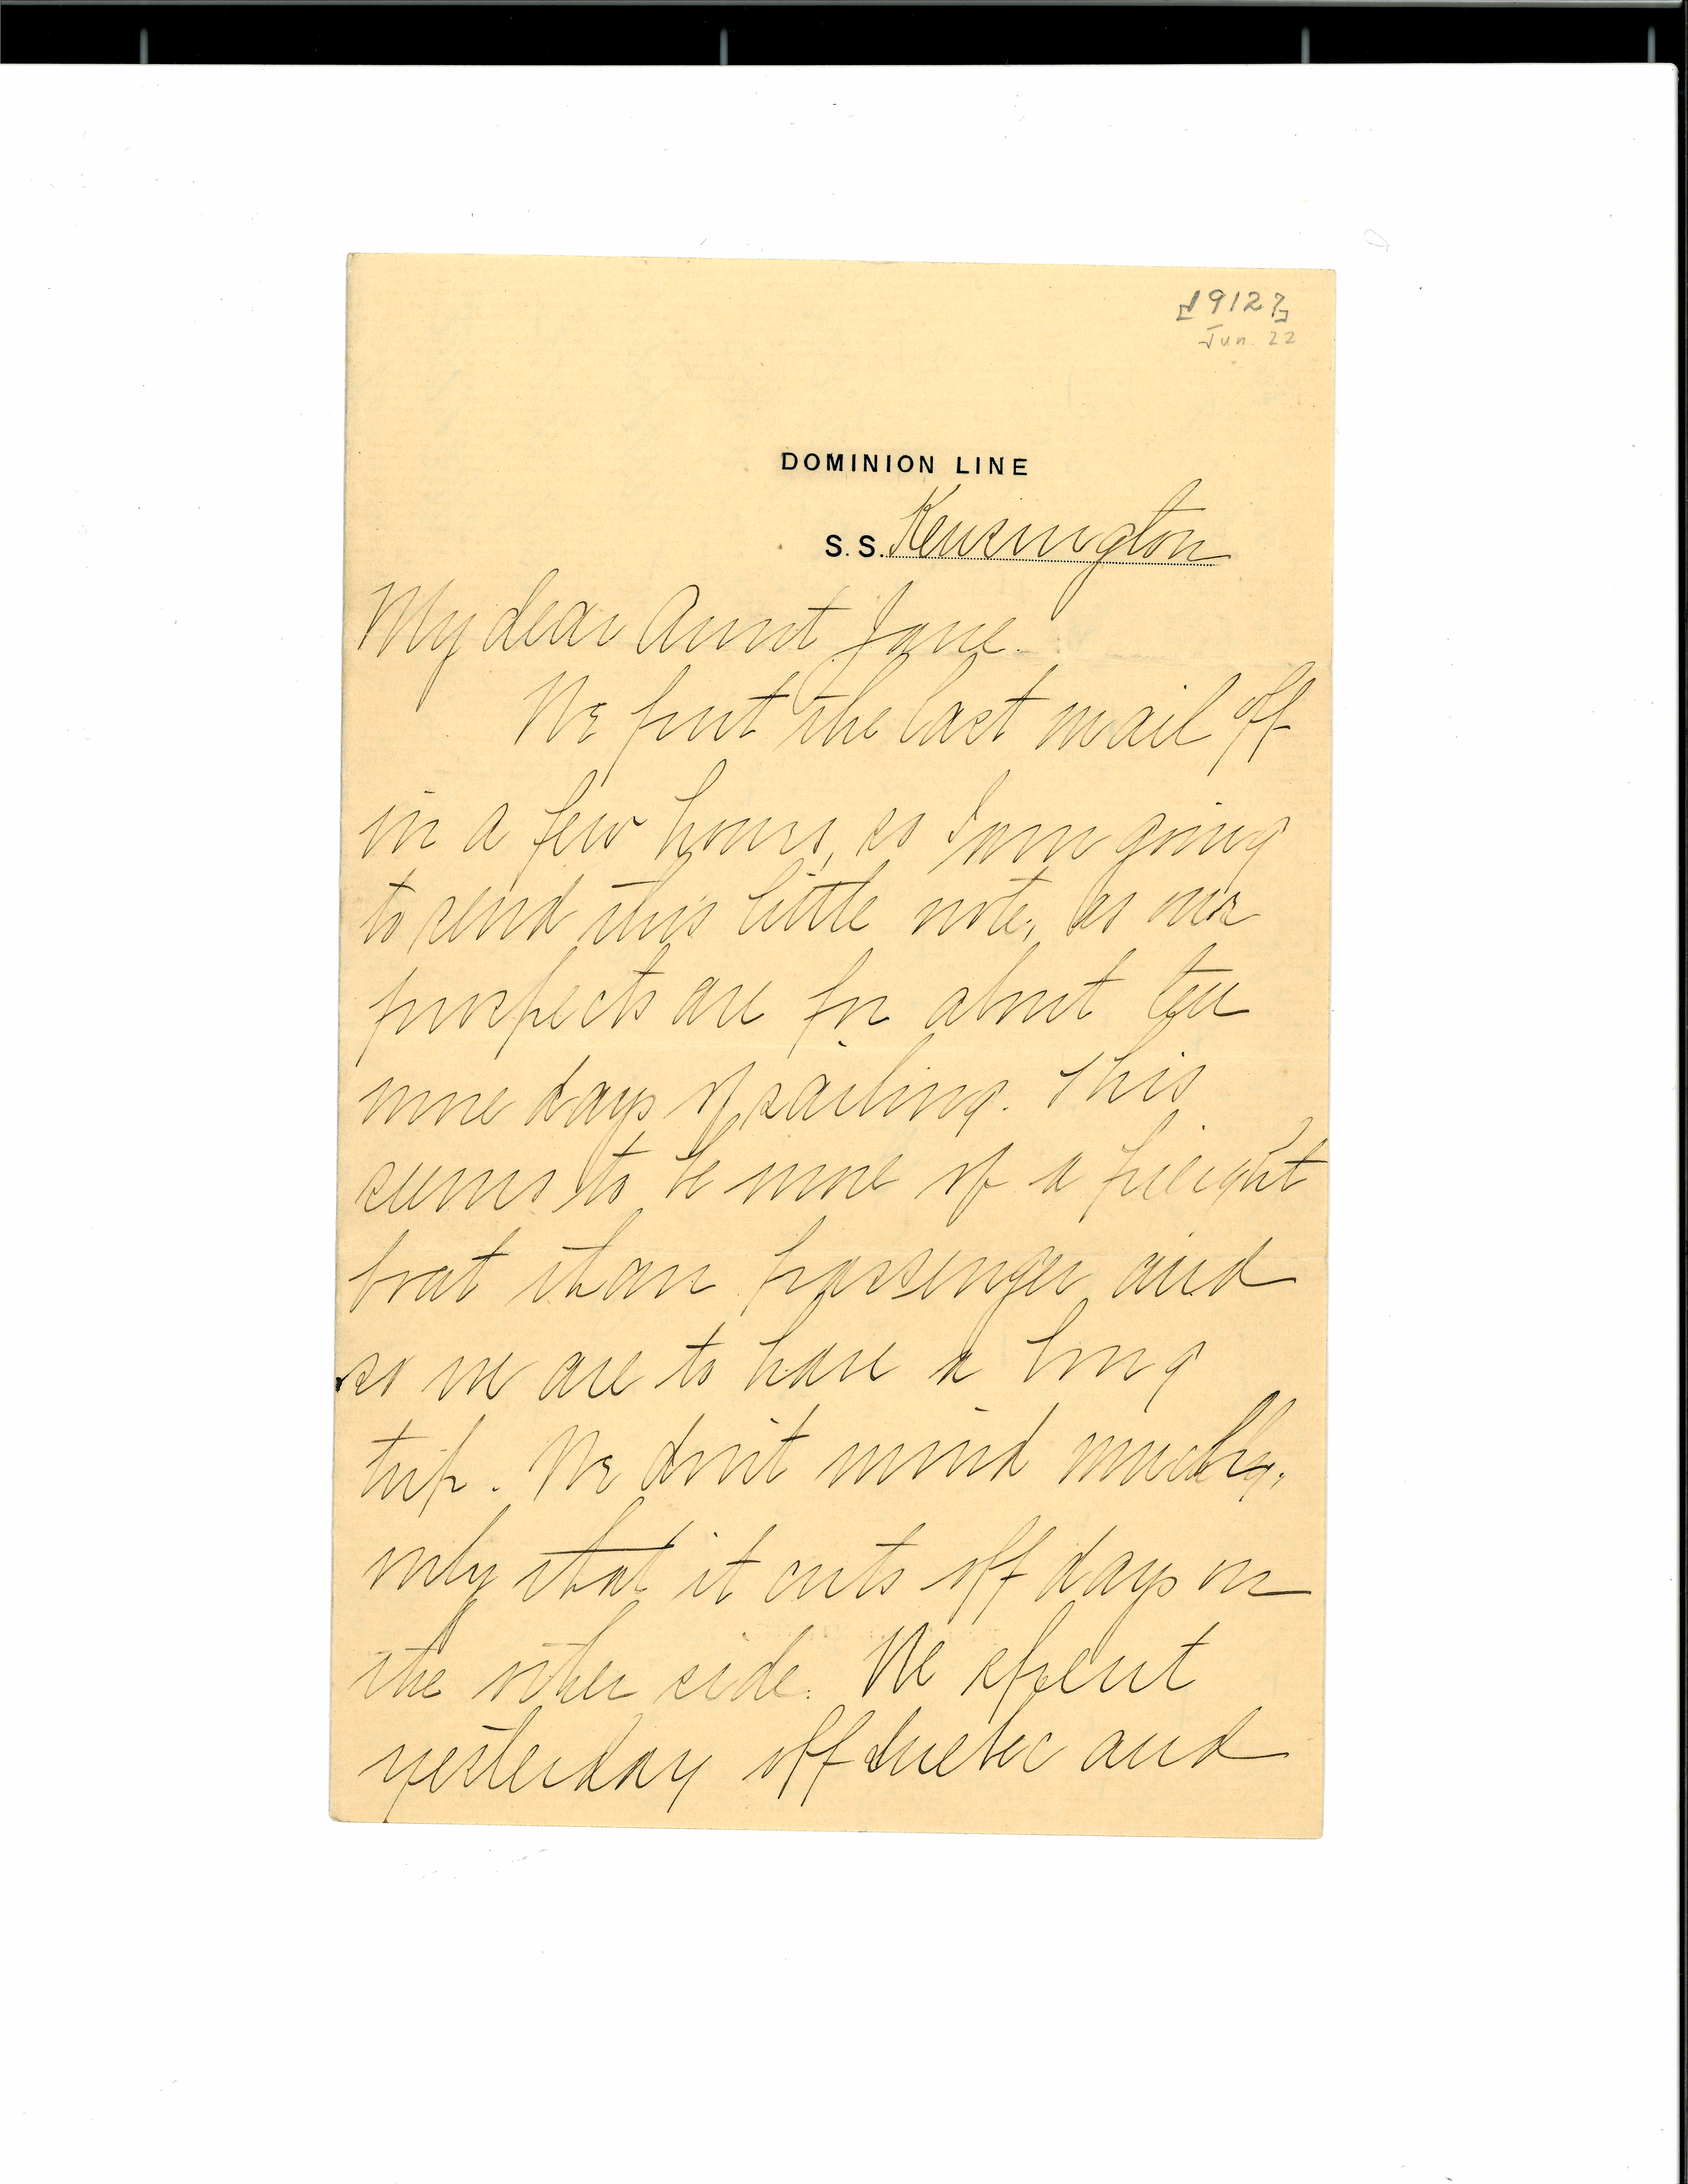 [1912?]
Jun. 22
DOMINION LINE
S.S. Kensington
My dear Aunt Jane.
We put the last mail off
in a few hours, so I am going
to send this little note, as our
prospects are for about ten
more days of sailing. This
seems to be more of a freight
boat than passenger and
so we are to have a long
trip. We don't mind much,
only that it cuts off days on
the other side. We spent
yesterday off Quebec and